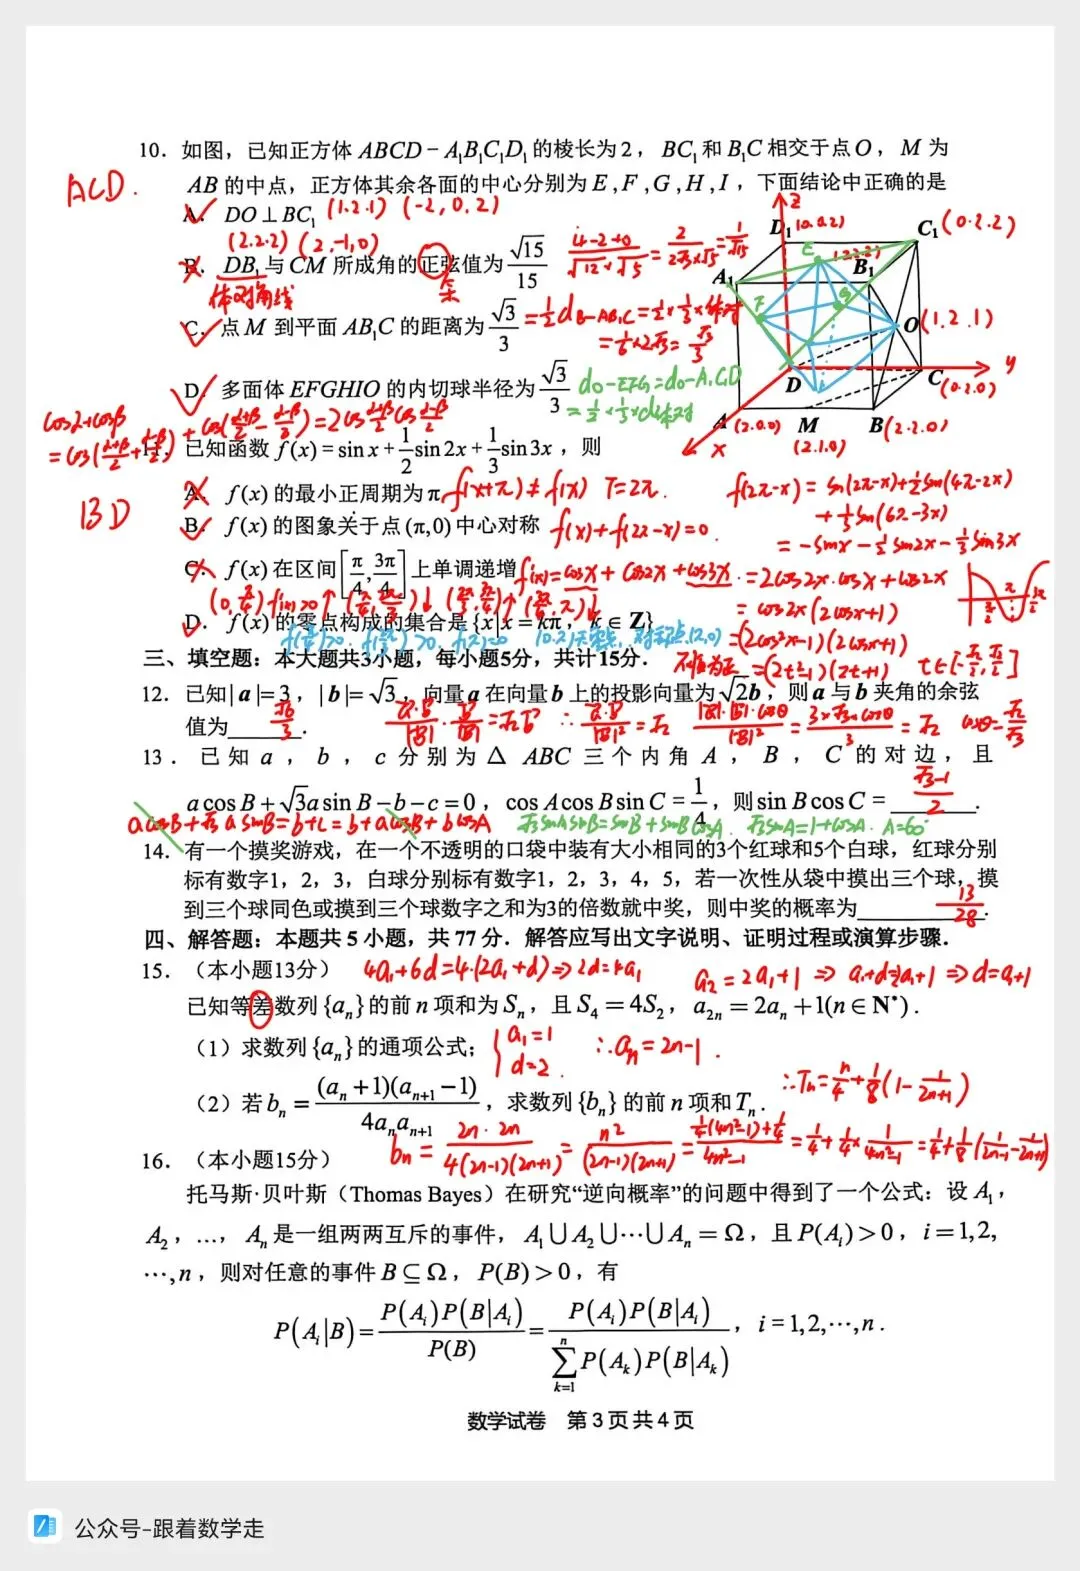 10. 如图，已知正方体 ABCD－A₁B₁C₁D₁ 的棱长为2，BC₁ 和 B₁C 相交于点O，M 为
AB 的中点，正方体其余各面的中心分别为 E,F,G,H,I，下面结论中正确的是
ACD.
A. DO⊥BC₁ (1.2.1) (-2,0.2)
(2.2.2) (2,-1,0)
B. DB₁与CM 所成角的正弦值为 √15/15
体对角线 余
(4-2+0)/(√12×√5) = 2/(2√3×√5) = 1/√15
C. 点M 到平面 AB₁C 的距离为 √3/3 = ½d B-AB₁C = ½×⅓×体对
= ⅙×2√3 = √3/3
D. 多面体 EFGHIO 的内切球半径为 √3/3 do-EFG = do-A₁C₁D
= ½×⅓×d体对
z D₁ (0.0.2) C₁ (0.2.2)
A₁ E B₁ (2.2.2)
F G O (1.2.1)
D H C (0.2.0) y
I
A (2.0.0) M (2.1.0) B (2.2.0) x
cosα+cosβ
=cos(α+β/2 + α-β/2) + cos(α+β/2 - α-β/2) = 2cos α+β/2 cos α-β/2
11. 已知函数 f(x)=sin x+½sin2x+⅓sin3x，则
BD
A. f(x) 的最小正周期为π, f(x+π)≠f(x) T=2π.
f(2π-x) = sin(2π-x)+½sin(4π-2x)
+⅓sin(6π-3x)
= -sinx-½sin2x-⅓sin3x
B. f(x) 的图象关于点(π,0)中心对称 f(x)+f(2π-x)=0.
C. f(x) 在区间[π/4, 3π/4]上单调递增 f'(x)=cosx+cos2x+cos3x.=2cos2x·cosx+cos2x
= cos2x(2cosx+1)
=(2cos²x-1)(2cosx+1)
=(2t²-1)(2t+1)
D. f(x) 的零点构成的集合是{x|x=kπ，k∈Z}
三、填空题：本大题共3小题，每小题5分，共计15分．
12. 已知|a|=3，|b|=√3，向量a在向量b上的投影向量为√2b，则a与b夹角的余弦
值为 √6/3 .
∴ a·b/|b|² = √2 |a|·|b|·cosθ/|b|² = 3×√3×cosθ/3 = √2 cosθ=√2/√3
13. 已知 a，b，c 分别为△ABC三个内角A，B，C的对边，且
a cos B+√3a sin B－b－c=0，cos A cos B sin C=1/4，则sin B cos C= (√3-1)/2 .
acosB+√3asinB=b+c=b+acosB+bcosA √3sinAsinB=sinB+sinBcosA. √3sinA=1+cosA. A=60°
14. 有一个摸奖游戏，在一个不透明的口袋中装有大小相同的3个红球和5个白球，红球分别
标有数字1，2，3，白球分别标有数字1，2，3，4，5，若一次性从袋中摸出三个球，摸
到三个球同色或摸到三个球数字之和为3的倍数就中奖，则中奖的概率为 13/28 .
四、解答题：本题共5小题，共77分．解答应写出文字说明、证明过程或演算步骤．
15. （本小题13分） 4a₁+6d=4·(2a₁+d)⇒2d=4a₁ a₂=2a₁+1 ⇒ a₁+d=2a₁+1 ⇒d=a₁+1
已知等差数列{aₙ}的前n项和为Sₙ，且S₄=4S₂，a₂ₙ=2aₙ+1(n∈N*)．
（1）求数列{aₙ}的通项公式； {a₁=1 d=2. ∴aₙ=2n-1.
（2）若bₙ=(aₙ+1)(aₙ₊₁－1)/4aₙaₙ₊₁，求数列{bₙ}的前n项和Tₙ． ∴Tₙ=n/4+⅛(1-1/(2n+1))
bₙ=2n·2n/4(2n-1)(2n+1)=n²/(2n-1)(2n+1)=(¼(4n²-1)+¼)/(4n²-1)=¼+¼×1/(4n²-1)=¼+⅛(1/(2n-1)-1/(2n+1))
16. （本小题15分）
托马斯·贝叶斯（Thomas Bayes）在研究“逆向概率”的问题中得到了一个公式：设A₁，
A₂，…，Aₙ是一组两两互斥的事件，A₁∪A₂∪⋯∪Aₙ=Ω，且P(Aᵢ)>0，i=1,2,
⋯,n，则对任意的事件B⊆Ω，P(B)>0，有
P(Aᵢ|B)=P(Aᵢ)P(B|Aᵢ)/P(B)=P(Aᵢ)P(B|Aᵢ)/∑ₖ₌₁ⁿP(Aₖ)P(B|Aₖ)，i=1,2,⋯,n．
数学试卷 第3页共4页
公众号-跟着数学走